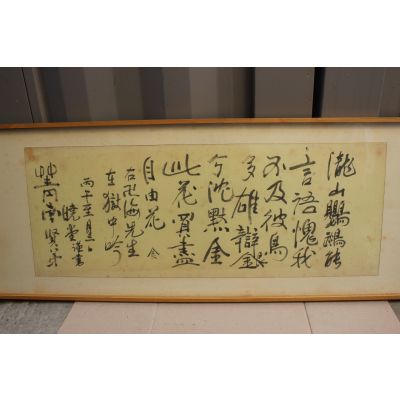 瀧山鸚鵡能
言語愧我
不及彼鳥
多雄辯銀
兮沈默金
此花買盡
自由花 金
右卍海先生
在獄中吟
丙午至月
曉堂謹書
南賢弟